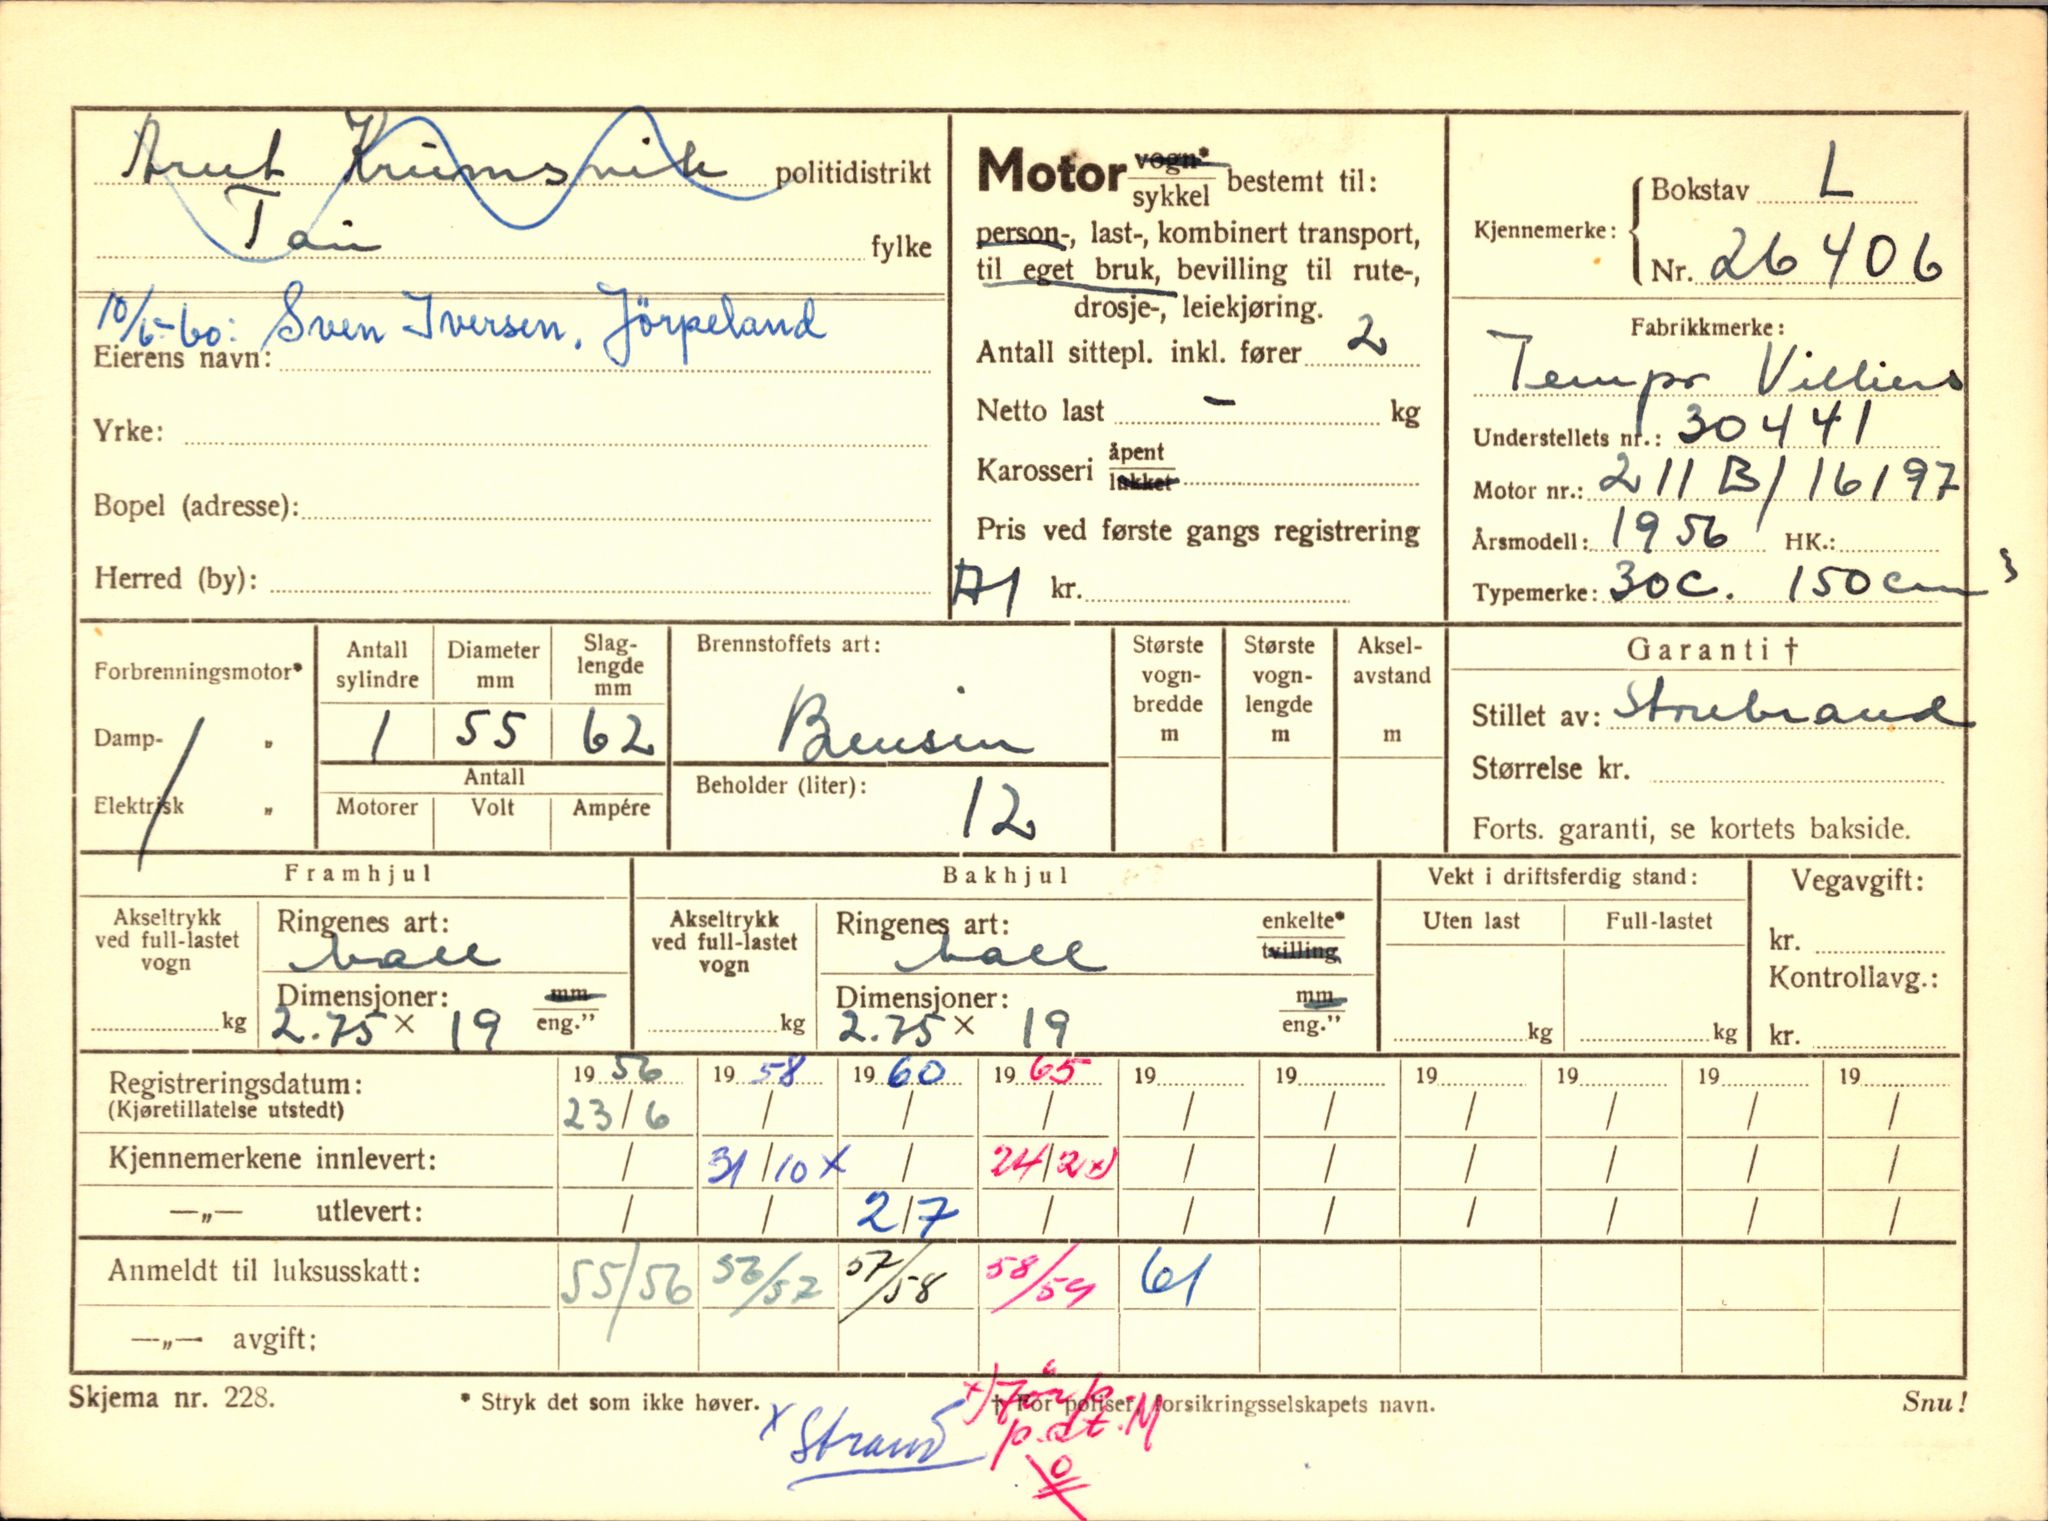 Krumsvik politidistrikt
Tau fylke
10/5-60: Sven Iversen, Jörpeland
Eierens navn:
Yrke:
Bopel (adresse):
Herred (by):
Motor vogn*/sykkel bestemt til:
person-, last-, kombinert transport,
til eget bruk, bevilling til rute-,
drosje-, leiekjøring.
Antall sittepl. inkl. fører 2
Netto last - kg
Karosseri åpent/lukket
Pris ved første gangs registrering
A1 kr.
Kjennemerke: Bokstav L
Nr. 26406
Fabrikkmerke:
Tempo Villiers
Understellets nr.: 30441
Motor nr.: 211B/16197
Årsmodell: 1956 HK.:
Typemerke: 30C. 150 cm³
Forbrenningsmotor*
Damp- „
Elektrisk „
Antall sylindre Diameter mm Slag-lengde mm
1 55 62
Antall
Motorer Volt Ampére
Brennstoffets art:
Bensin
Beholder (liter):
12
Største vogn-bredde m
Største vogn-lengde m
Aksel-avstand m
Garanti †
Stillet av: Storebrand
Størrelse kr.
Forts. garanti, se kortets bakside.
Framhjul
Akseltrykk ved full-lastet vogn
kg
Ringenes art:
ball
Dimensjoner: mm/eng."
2.75 x 19
Bakhjul
Akseltrykk ved full-lastet vogn
kg
Ringenes art: enkelte*/tvilling
ball
Dimensjoner: mm/eng."
2.75 x 19
Vekt i driftsferdig stand:
Uten last Full-lastet
kg kg
Vegavgift:
kr.
Kontrollavg.:
kr.
Registreringsdatum: 1956 1958 1960 1965 19 19 19 19 19 19
(Kjøretillatelse utstedt) 23/6 / / / / / / / / /
Kjennemerkene innlevert: / 31/10 x / 24/2 x) / / / / / /
—„— utlevert: / / 2/7 / / / / / / /
Anmeldt til luksusskatt: 55/56 56/57 57/58 58/59 61
—„— avgift:
Skjema nr. 228. * Stryk det som ikke høver. † For poliser, forsikringsselskapets navn. Snu!
x Strand
x) Jörp.
p.dt. M
0